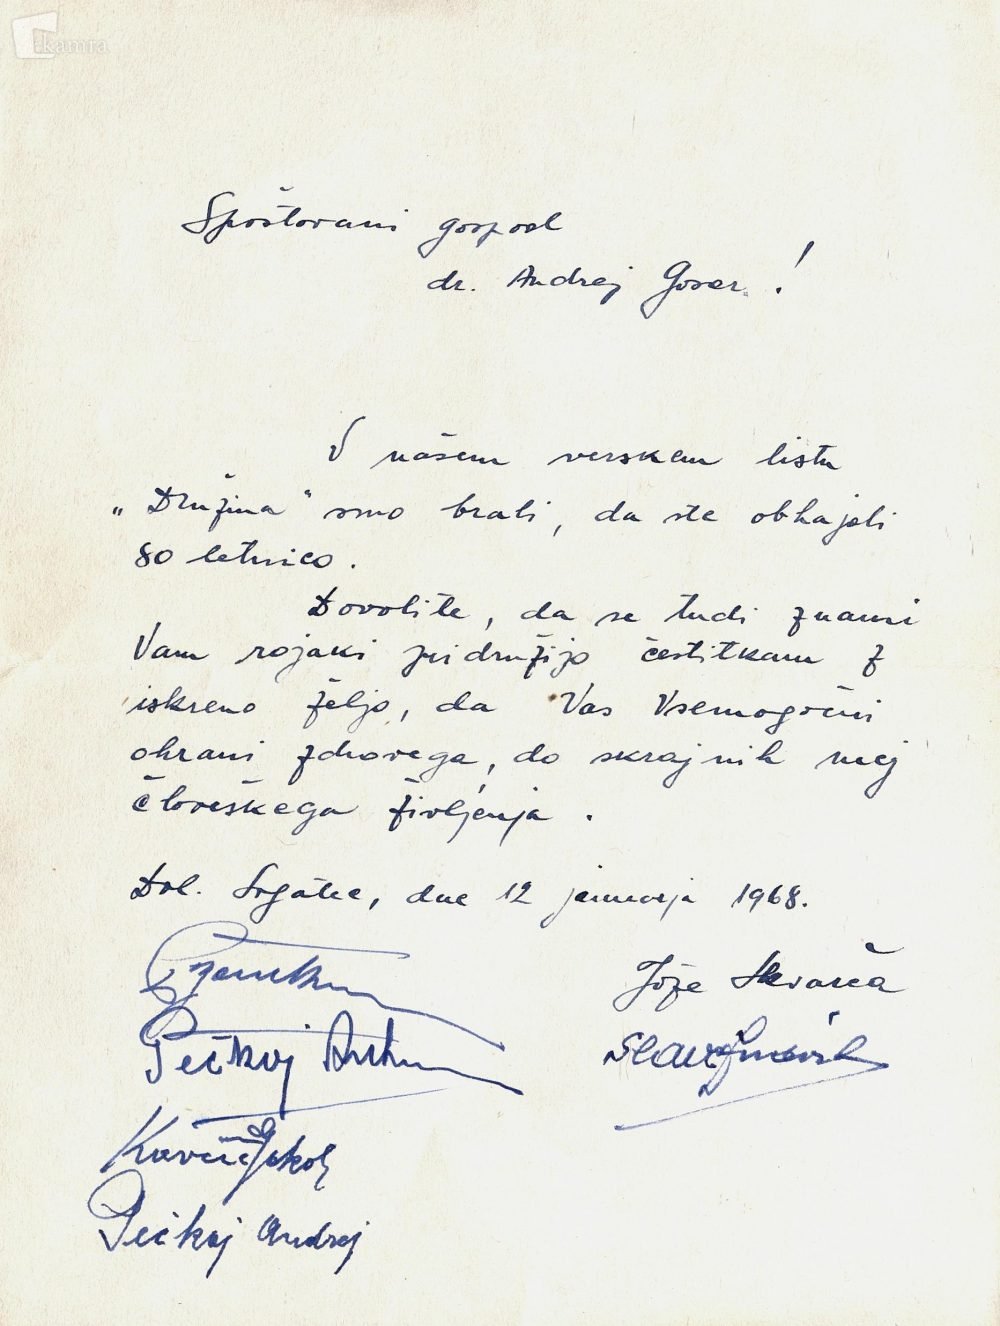 kamra
Spoštovani gospod
dr. Andrej Gosar !
V našem verskem listu
„Družina" smo brali, da ste obhajali
80 letnico.
Dovolite, da se tudi znani
Vam rojaki pridružijo čestitkam z
iskreno željo, da Vas Vsemogočni
ohrani zdravega, do skrajnih mej
človeškega življenja.
Dol. , dne 12 januarja 1968.
Jože
Pečkaj
Jakob
Pečkaj Andrej